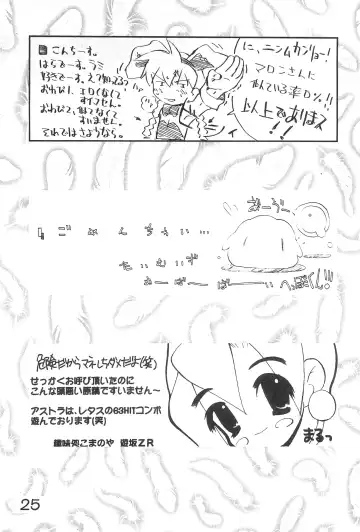 こんちーす。
はらでーす。ラミ
好きでーす。
おわび1、エロくなくて
すいません。
おわび2、似てなくて
すいません。
それではさようなら。
に、ニンムカンリョー!
マロンさんに
似ている率0%!!
以上でありまス!!
ごめんちゃい…
たいむず
おーばーばーい
危険だからマネしちゃダメだよ(笑)
せっかくお呼び頂いたのに
こんな頭悪い原稿ですいません〜
アストラは、レタスの63HITコンボ
遊んでおります(笑)
趣味処こまのや 遊坂ZR
まるっ
25